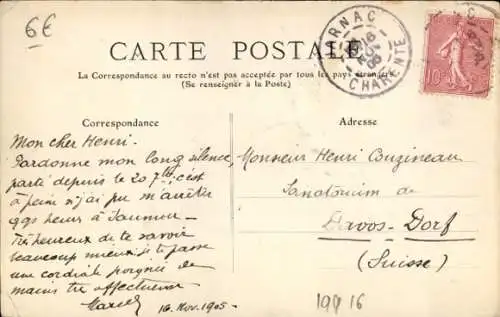 6€
CARTE POSTALE
La Correspondance au recto n'est pas acceptée par tous les pays étrangers.
(Se renseigner à la Poste)
JARNAC
CHARENTE
10
Correspondance
Mon cher Henri.
Pardonne mon long silence,
parti depuis le 20 7bre c'est
à peine si j'ai pu m'arrêter
qqs heures à Saumur —
Très heureux de te savoir
beaucoup mieux je te passe
une cordiale poignée de
mains très affectueuse
Marcel
16. Nov. 1905 -
Adresse
Monsieur Henri Couzineau
Sanatorium de
Davos-Dorf
(Suisse)
16